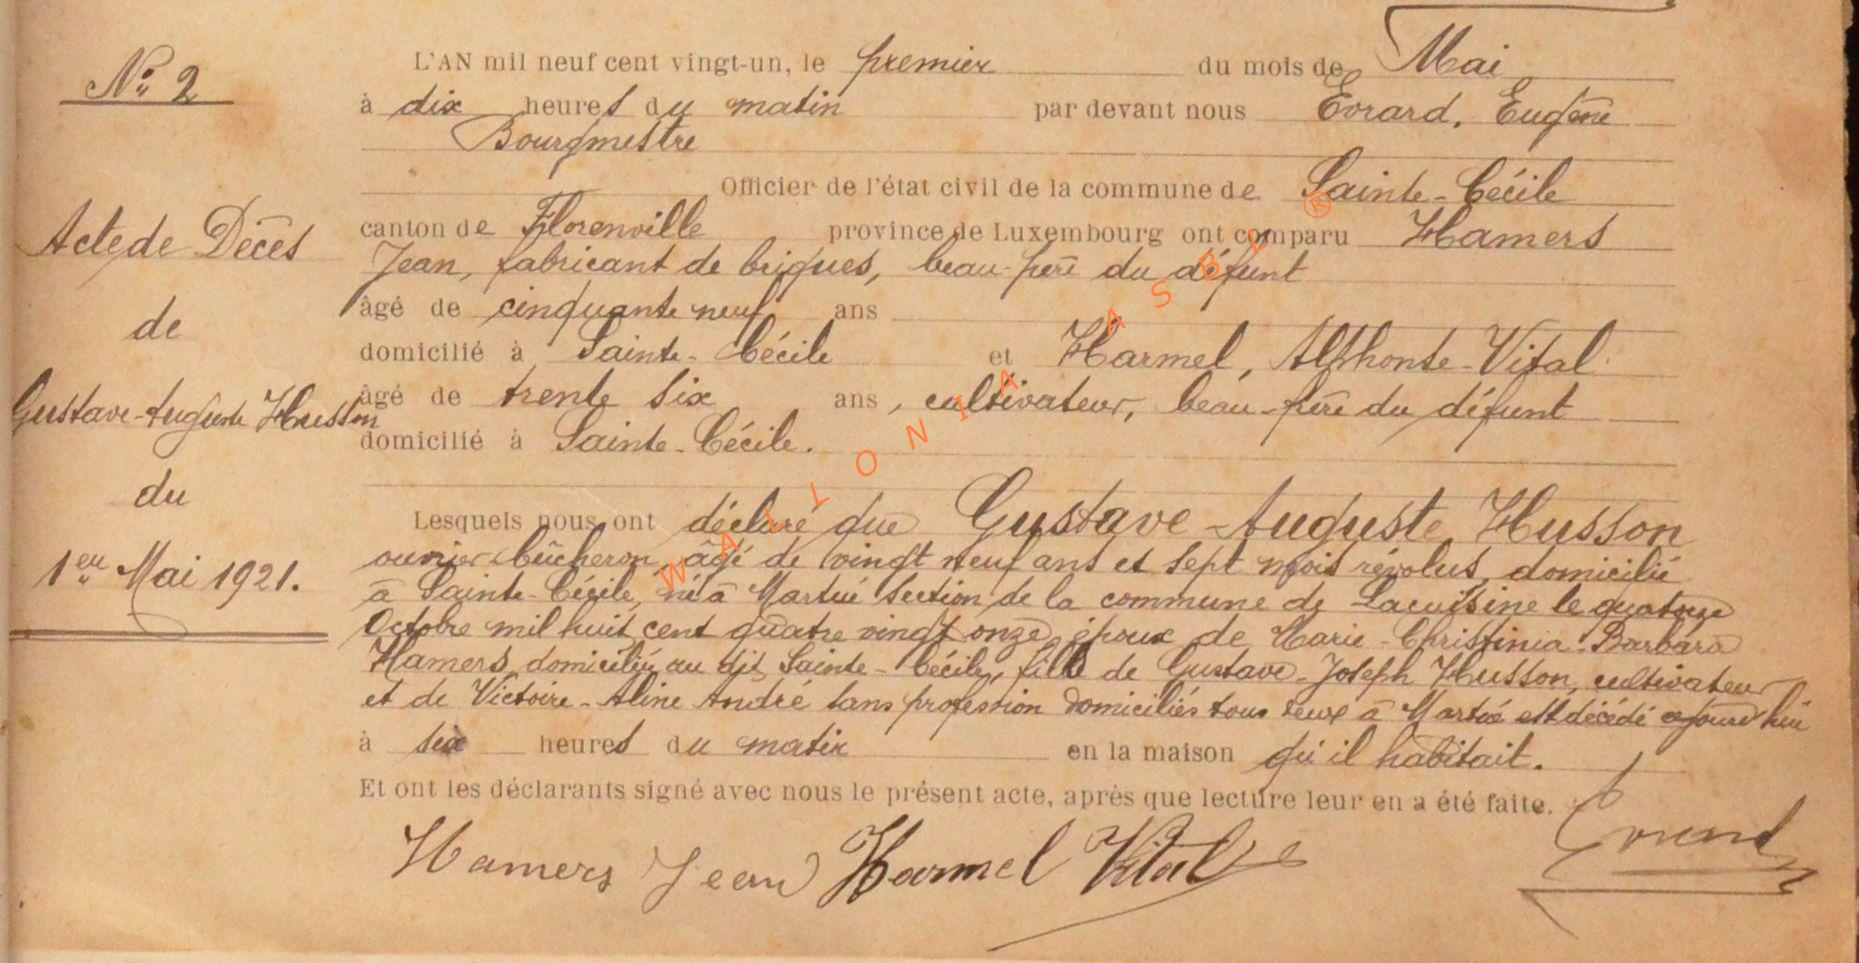 N° 2
Acte de Décès
de
Gustave-Auguste Husson
du
1er Mai 1921.
L'AN mil neuf cent vingt-un, le premier du mois de Mai
à dix heures du matin par devant nous Evrard, Eugène
Bourgmestre
Officier de l'état civil de la commune de Sainte-Cécile
canton de Florenville province de Luxembourg ont comparu Hamers
Jean, fabricant de briques, beau-père du défunt
âgé de cinquante neuf ans
domicilié à Sainte-Cécile et Harmel, Alphonse-Vital
âgé de trente six ans, cultivateur, beau-frère du défunt
domicilié à Sainte-Cécile.
Lesquels nous ont déclaré que Gustave-Auguste Husson
ouvrier bûcheron, âgé de vingt neuf ans et sept mois révolus, domicilié
à Sainte-Cécile, né à Martué section de la commune de Lacuisine le quatorze
Octobre mil huit cent quatre vingt onze, époux de Marie-Christinia-Barbara
Hamers, domiciliée au dit Sainte-Cécile, fils de Gustave-Joseph Husson, cultivateur
et de Victoire-Aline André sans profession domiciliés tous deux à Martué est décédé cejourd'hui
à six heures du matin en la maison qu'il habitait.
Et ont les déclarants signé avec nous le présent acte, après que lecture leur en a été faite.
Hamers Jean Harmel Vital Evrard
WALLONIA ASBL ®